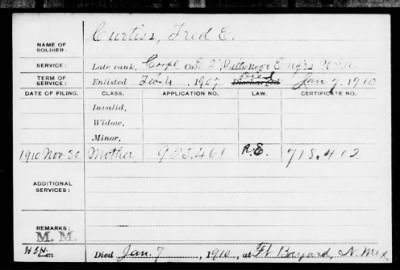 NAME OF SOLDIER: Curtiss, Fred E.
SERVICE: Late rank, Corpl Co. Engrs U.S.A.
TERM OF SERVICE: Enlisted Feb. 4, 1907 Died Jan 7, 1910
DATE OF FILING. CLASS. APPLICATION NO. LAW. CERTIFICATE NO.
Invalid,
Widow,
Minor,
1910 Nov. Mother R.E. 718.402
ADDITIONAL SERVICES:
REMARKS:
M. M.
Died Jan. 7, 1910, at Ft Bayard, N. Mex